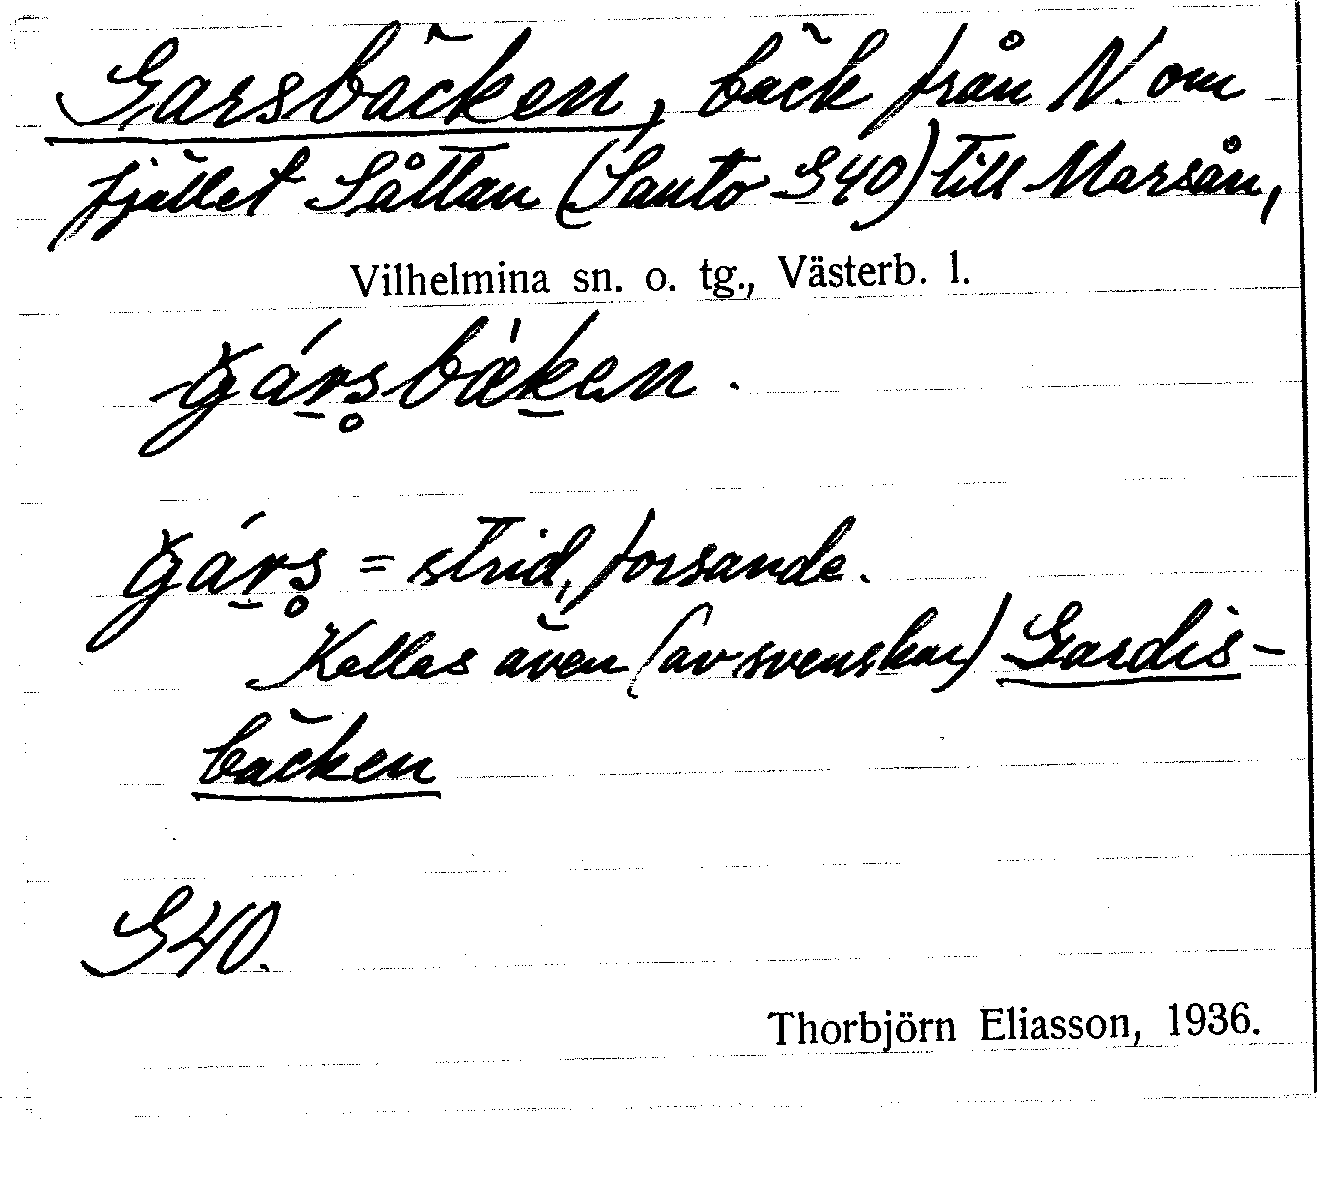 Garsbäcken, bäck från N. om
fjället Såttan (Sauto S40) till Marsån,
Vilhelmina sn. o. tg., Västerb. l.
gárs̥bæken.
gárs̥ = strid, forsande.
Kallas även (av svenskar) Gardis-
bäcken
S40.
Thorbjörn Eliasson, 1936.